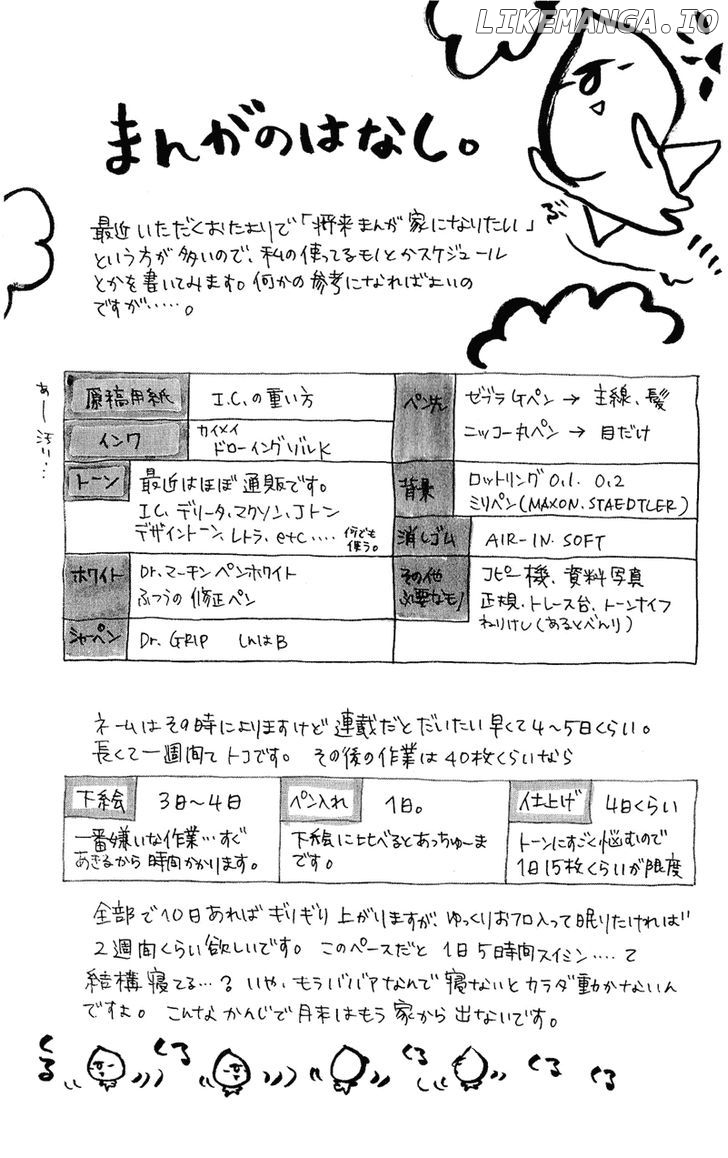 LIKEMANGA.IO
まんがのはなし。
最近いただくおたよりで「将来まんが家になりたい」
という方が多いので、私の使ってるモノとかスケジュール
とかを書いてみます。何かの参考になればよいの
ですが……。
あー汚い…
原稿用紙 I.C.の重い方
インク カイメイ
ドローイングゾルK
トーン 最近はほぼ通販です。
I.C. デリータ、マクソン、Jトン
デザイントーン、レトラ、etc….. 何でも
使う。
ホワイト Dr.マーチンペンホワイト
ふつうの修正ペン
シャーペン Dr. GRIP しんはB
ペン先 ゼブラGペン → 主線、髪
ニッコー丸ペン → 目だけ
背景 ロットリング 0.1. 0.2
ミリペン(MAXON. STAEDTLER)
消しゴム AIR-IN SOFT
その他
必要なモノ
コピー機、資料写真
正規、トレース台、トーンナイフ
ねりけし(あるとべんり)
ネームはその時によりますけど連載だとだいたい早くて4〜5日くらい。
長くて一週間てトコです。その後の作業は40枚くらいなら
下絵 3日〜4日
一番嫌いな作業…すぐ
あきるから時間かかります。
ペン入れ 1日。
下絵に比べるとあっちゅーま
です。
仕上げ 4日くらい
トーンにすごく悩むので
1日15枚くらいが限度
全部で10日あればギリギリ上がりますが、ゆっくりおフロ入って眠りたければ
2週間くらい欲しいです。このペースだと1日5時間スイミン….て
結構寝てる…?いや、もうババアなんで寝ないとカラダ動かないん
ですよ。こんなかんじで月末はもう家から出ないです。
くる くる くる くる くる